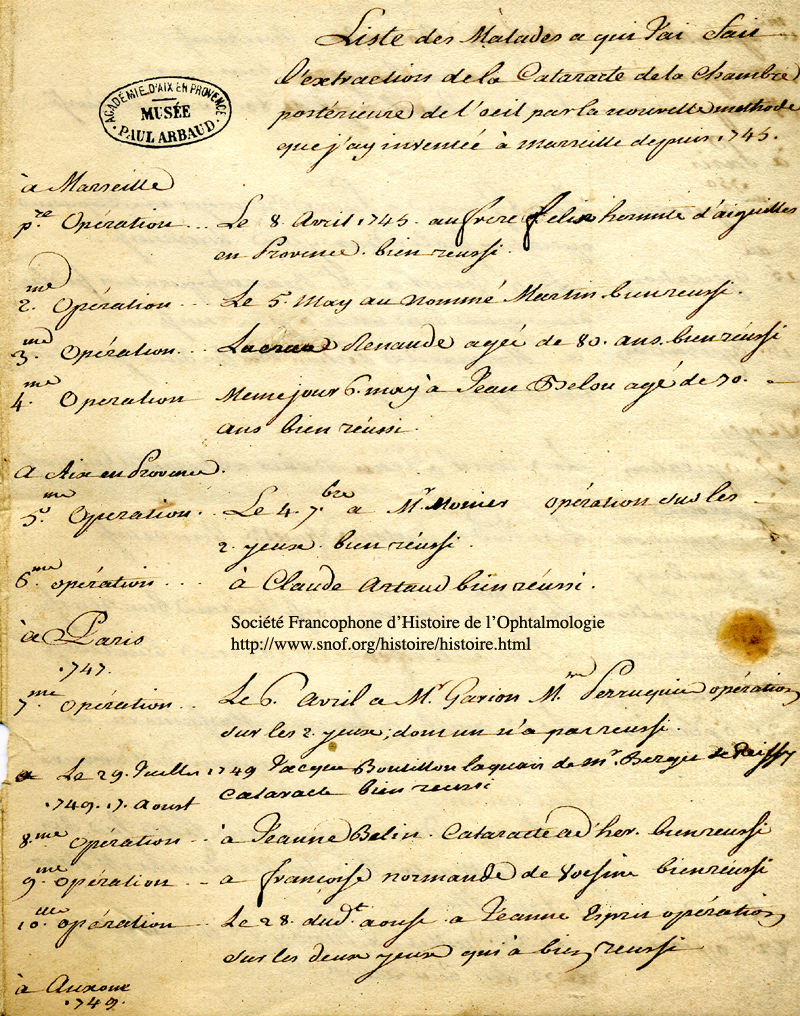 Liste des Malades a qui J'ai fait
l'extraction de la Cataracte de la Chambre
postérieure de l'oeil par la nouvelle methode
que j'ay inventée à marseille depuis 1745.
ACADÉMIE D'AIX EN PROVENCE
MUSÉE
PAUL ARBAUD
à Marseille
pre. Opération .. Le 8. Avril 1745. au frere felix hermite d'aiguilles
en Provence. bien reussi.
2.me Opération .. Le 5. May au nommé Martin. bien reussi.
3.me Opération .. Renaude agée de 80. ans. bien réussi
4.me Operation Meme jour 6. may à Jean agé de 70.
ans bien réussi.
a Aix en Provence.
5.me Operation. .. Le 4. 7.bre a Mr. opération sur les
2. yeux. bien réussi.
6.me opération ... à Claude Artaud bien réussi.
Société Francophone d'Histoire de l'Ophtalmologie
http://www.snof.org/histoire/histoire.html
à Paris
1747.
7.me opération .. Le 6. Avril a Mr. Garion M.re Perruquier opération
sur les 2. yeux, dont un n'a pas reussi.
Le 29. Juillet 1749 Jacque Boutillon laquais de mr.
1749. 17. Aoust Cataracte bien reussi
8.me Opération .. à Jeanne Belin. Cataracte bien reussi
9.me opération .. a françoise normande de bien réussi
10.me opération .. Le 28. dudt. aoust a Jeanne Esprit opération
sur les deux yeux qui à bien reussi
à Auxone
1749.